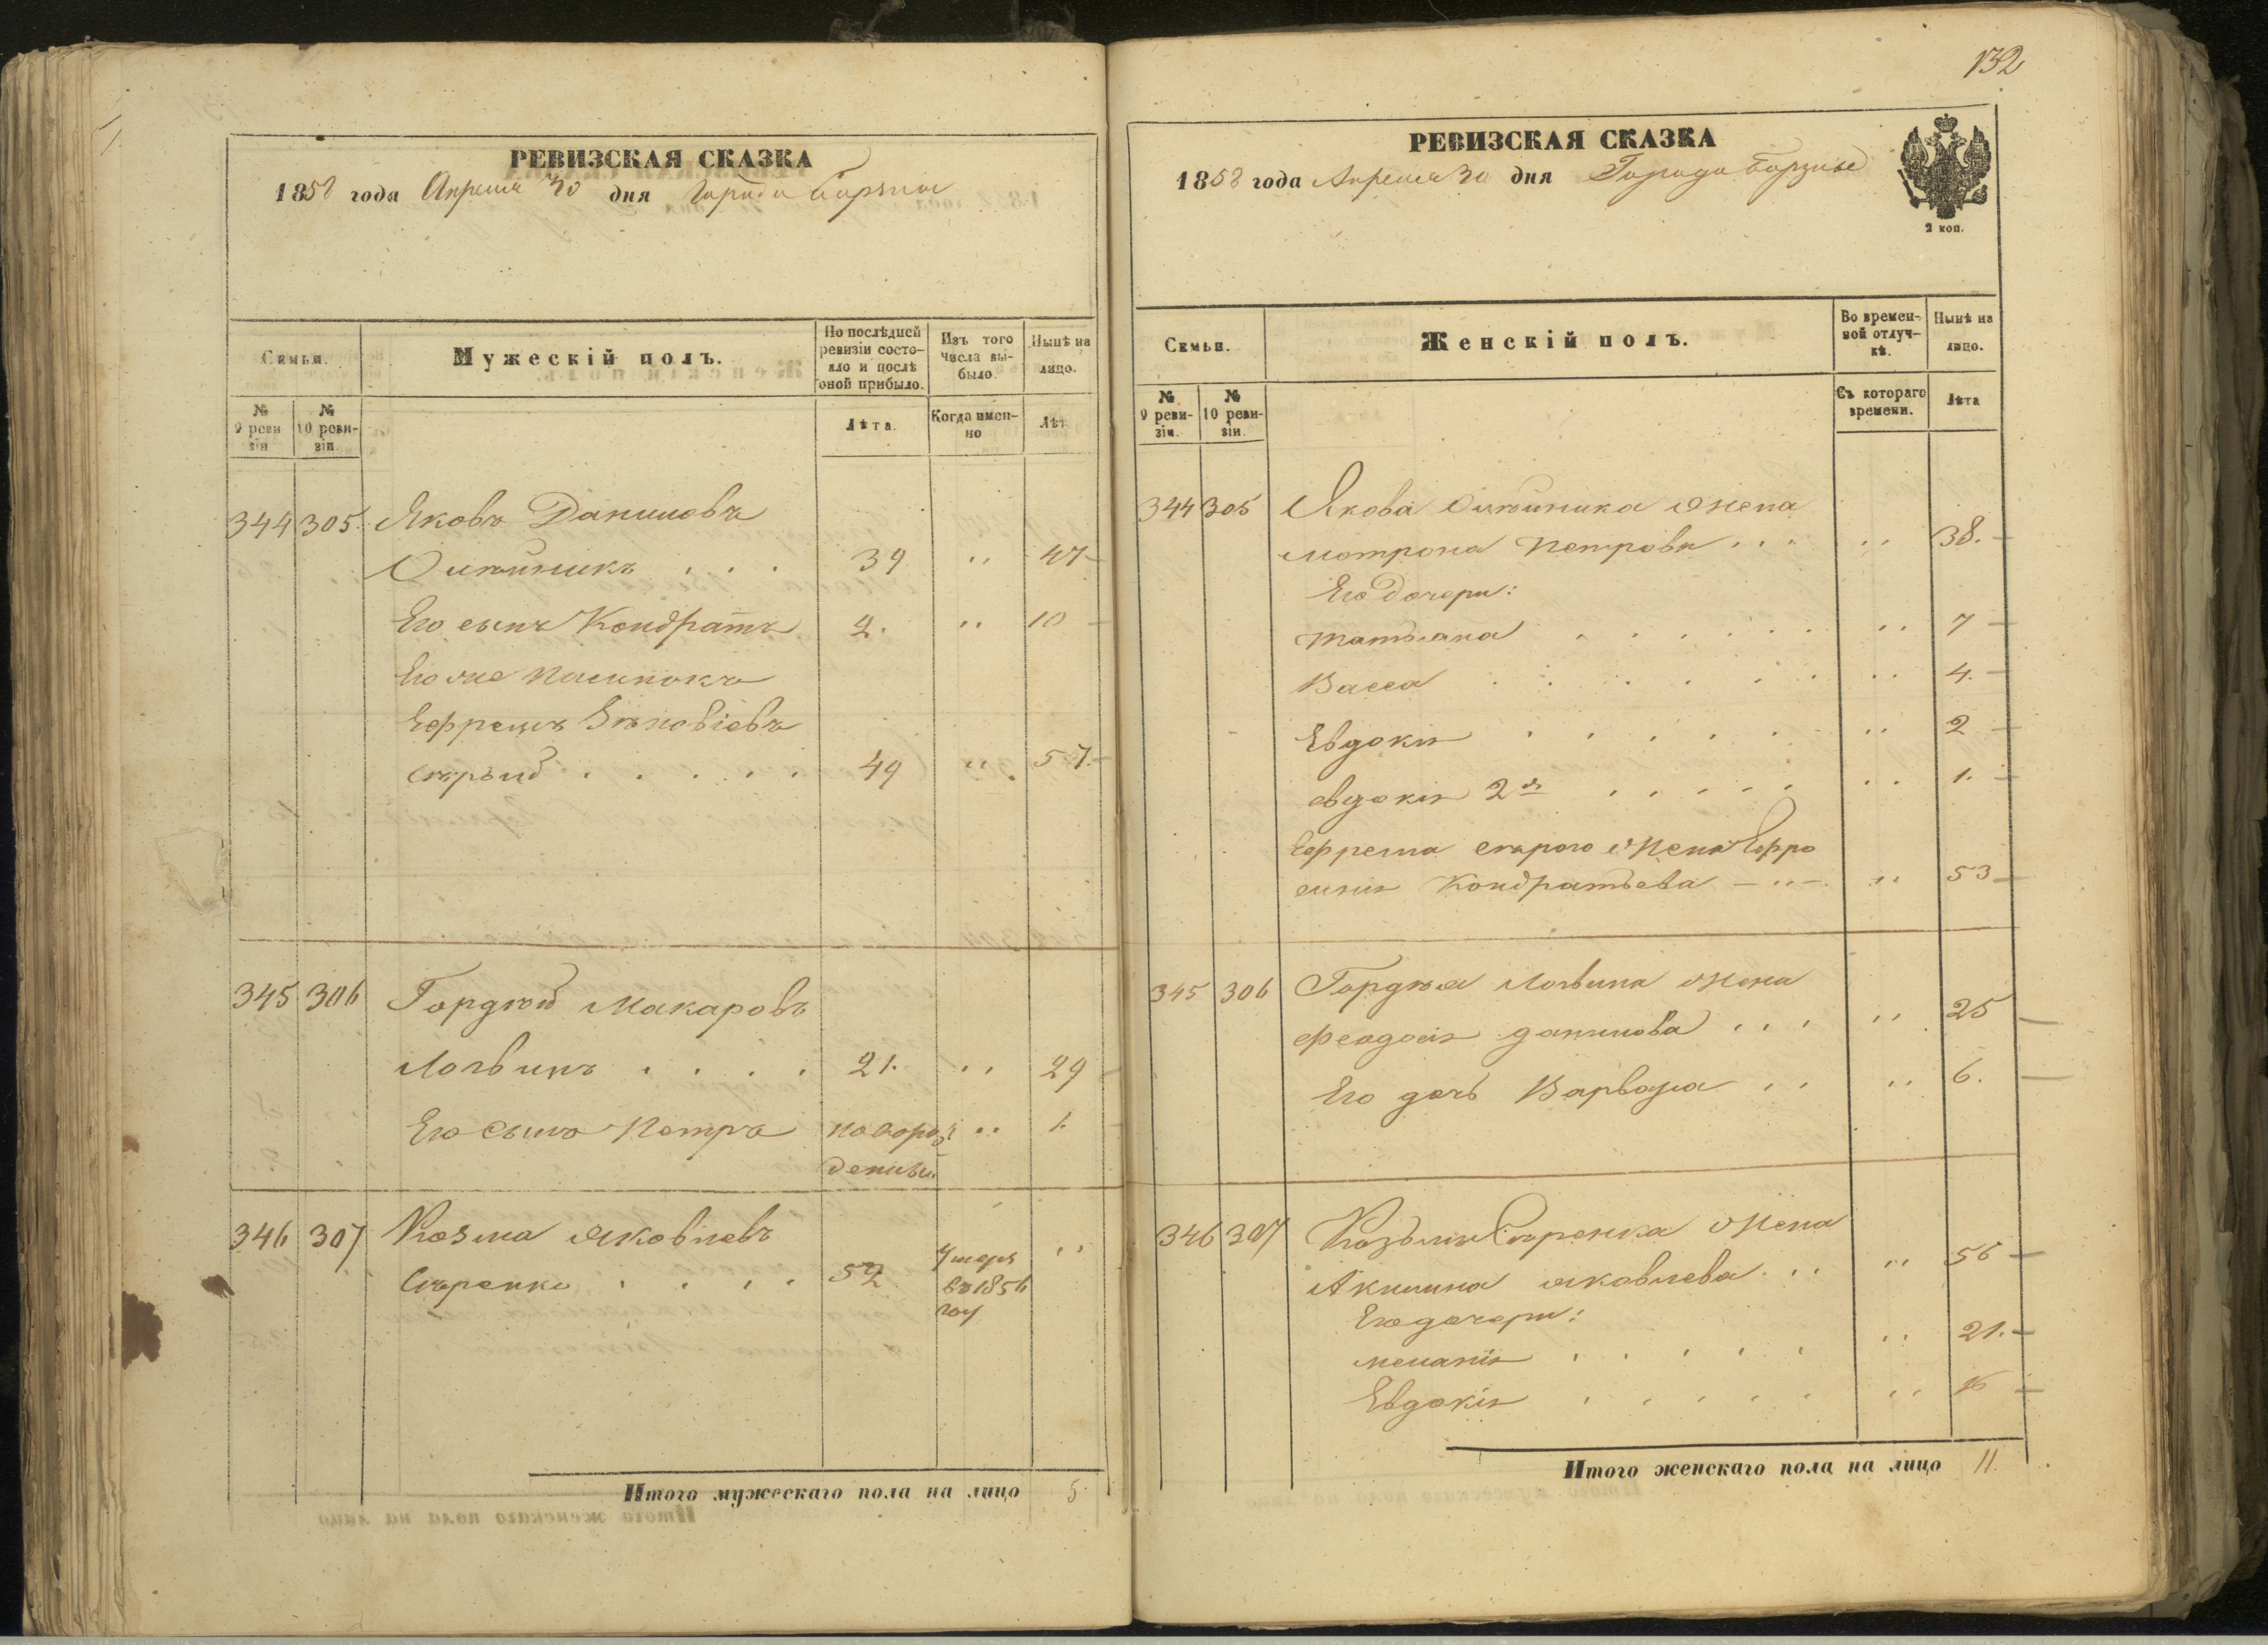 132
РЕВИЗСКАЯ СКАЗКА
1858 года Апреля 30 дня Города Борзны
Семьи.
Мужескій полъ.
По послѣдней ревизіи состояло и послѣ оной прибыло.
Изъ того числа выбыло.
Нынѣ на лицо.
№ 9 ревизіи
№ 10 ревизіи.
Лѣта.
Когда именно
Лѣт
344 305. Яковъ Даниловъ
Олѣйникъ . . . 39 " 47
Его сынъ Кондратъ 2. " 10
Его же пасынокъ
Ефремъ Зѣновіевъ
Сѣрый . . . . . 49 " 57.
345 306 Гордѣй Макаровъ
Логвинъ . . . . 21. " 29
Его сынъ Петръ новорож " 1.
денный
346 307 Козма Яковлевъ
Сѣренко . . . . 52 Умеръ "
въ 1856
году
Итого мужескаго пола на лицо 5.
РЕВИЗСКАЯ СКАЗКА
1858 года Апреля 30 дня Города Борзны
2 коп.
Семьи.
Женскій полъ.
Во временной отлучкѣ.
Нынѣ на лицо.
№ 9 ревизіи.
№ 10 ревизіи.
Съ котораго времени.
Лѣта
344 305 Якова Олѣйника жена
Мотрона Петрова . . . " 38.
Его дочери:
Татьяна . . . . . . " 7
Васса . . . . . . " 4.
Евдокія . . . . . . " 2
Евдокія 2я . . . . . " 1.
Ефрема Сѣрого жена Ефро
синія Кондратьева — " — " 53
345 306 Гордѣя Логвина жена
Феодосія Данилова . . . " 25
Его дочь Варвара . . " 6.
346 307 Козьмы Сѣренка жена
Акилина Яковлева . . . " 56
Его дочери:
Меланія . . . . . " 21.
Евдокія . . . . . " 16
Итого женскаго пола на лицо 11.